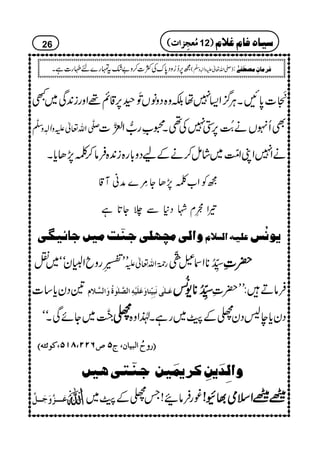 سیاہ فام غلام (12 مُعجِزات) 26
فرمانِ مصطفےٰ (صلی اللہ تعالیٰ علیہ والہ وسلم) مجھ پر دُرُودِ پاک کی کثرت کرو بے شک یہ تمہارے لئے طہارت ہے۔
نَجات پائیں۔ ہرگز ایسا نہیں تھا بلکہ وہ دونوں توحید پر قائم تھے اور زندگی میں کبھی
بھی اُنہوں نے بُت پرستی نہیں کی تھی۔ محبوبِ ربُّ العزّت صلَّی اللہ تعالیٰ علیہ واٰلہٖ وسلَّم
نے انہیں اپنی اُمّت میں شامل کرنے کے لیے دوبارہ زندہ فرما کر کلمہ پڑھایا۔
مجھ کو اب کلمہ پڑھا جا مرے مدنی آقا
تیرا مُجرِم شہا دنیا سے چلا جاتا ہے
یونُس علیہ السلام والی مچھلی جنّت میں جائیگی
حضرتِ سیِّدُنا اسماعیل حقّی رحمۃ اللہ تعالیٰ علیہ ’’تفسیرِ روحُ البیان‘‘ میں نقل
فرماتے ہیں: ’’حضرتِ سیِّدُنا یونُس عَلٰی نَبِیِّنَا وَعَلَیْہِ الصَّلٰوۃُ وَالسَّلَام تین دن یا سات
دن یا چالیس دن مچھلی کے پیٹ میں رہے۔ لہٰذا وہ مچھلی جنّت میں جائے گی۔‘‘
(روحُ البیان، ج۵ ص۲۲۶، ۵۱۸، کوئٹہ)
والِدَینِ کریمَین جنّتی ہیں
میٹھے میٹھے اسلامی بھائیو! غور فرمائیے! جس مچھلی کے پیٹ میں اللہ عَزَّوَجَلَّ